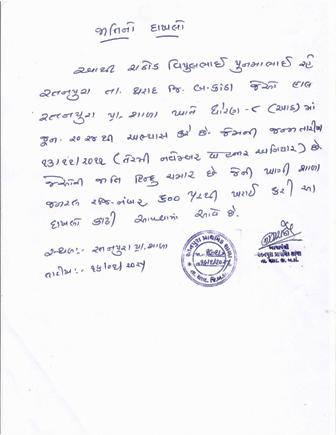 જાતિનો દાખલો
આથી રાઠોડ વિપુલભાઈ પુનમાભાઈ રહે
રતનપુરા તા. થરાદ જિ. બ.કાંઠા જેઓ હાલ
રતનપુરા પ્રા. શાળા ખાતે ધોરણ - ૮ (આઠ) માં
જૂન. ૨૦૨૪થી અભ્યાસ કરે છે. જેમની જન્મ તારીખ
(તેરમી નવેમ્બર શનિવાર) છે.
જેઓની જાતિ હિન્દુ ચમાર છે જેની ખાત્રી શાળા
જનરલ રજિ. નંબર. ૬૦૦ ખરાઈ કરી આ
દાખલો કાઢી આપવામાં આવે છે.
સ્થળ :- રતનપુરા પ્રા. શાળા
તારીખ :-
રતનપુરા પ્રાથમિક શાળા
આચાર્યશ્રી
રતનપુરા પ્રાથમિક શાળા
તા. થરાદ, જી. બ.કાં.